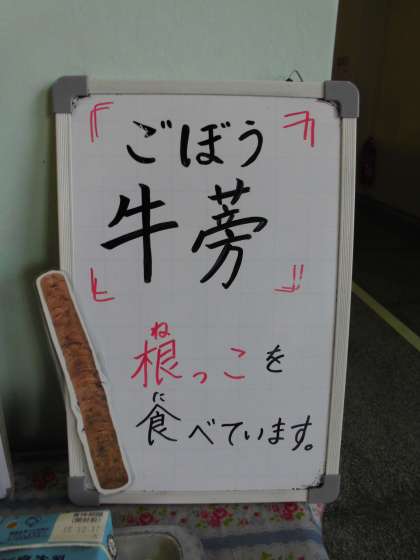 ごぼう
牛蒡
ね
根っこを
に
食べています。